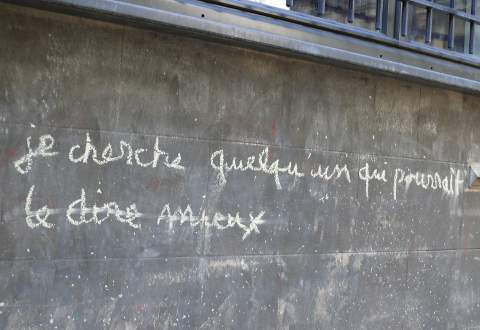 je cherche quelqu'un qui pourrait
le dire mieux